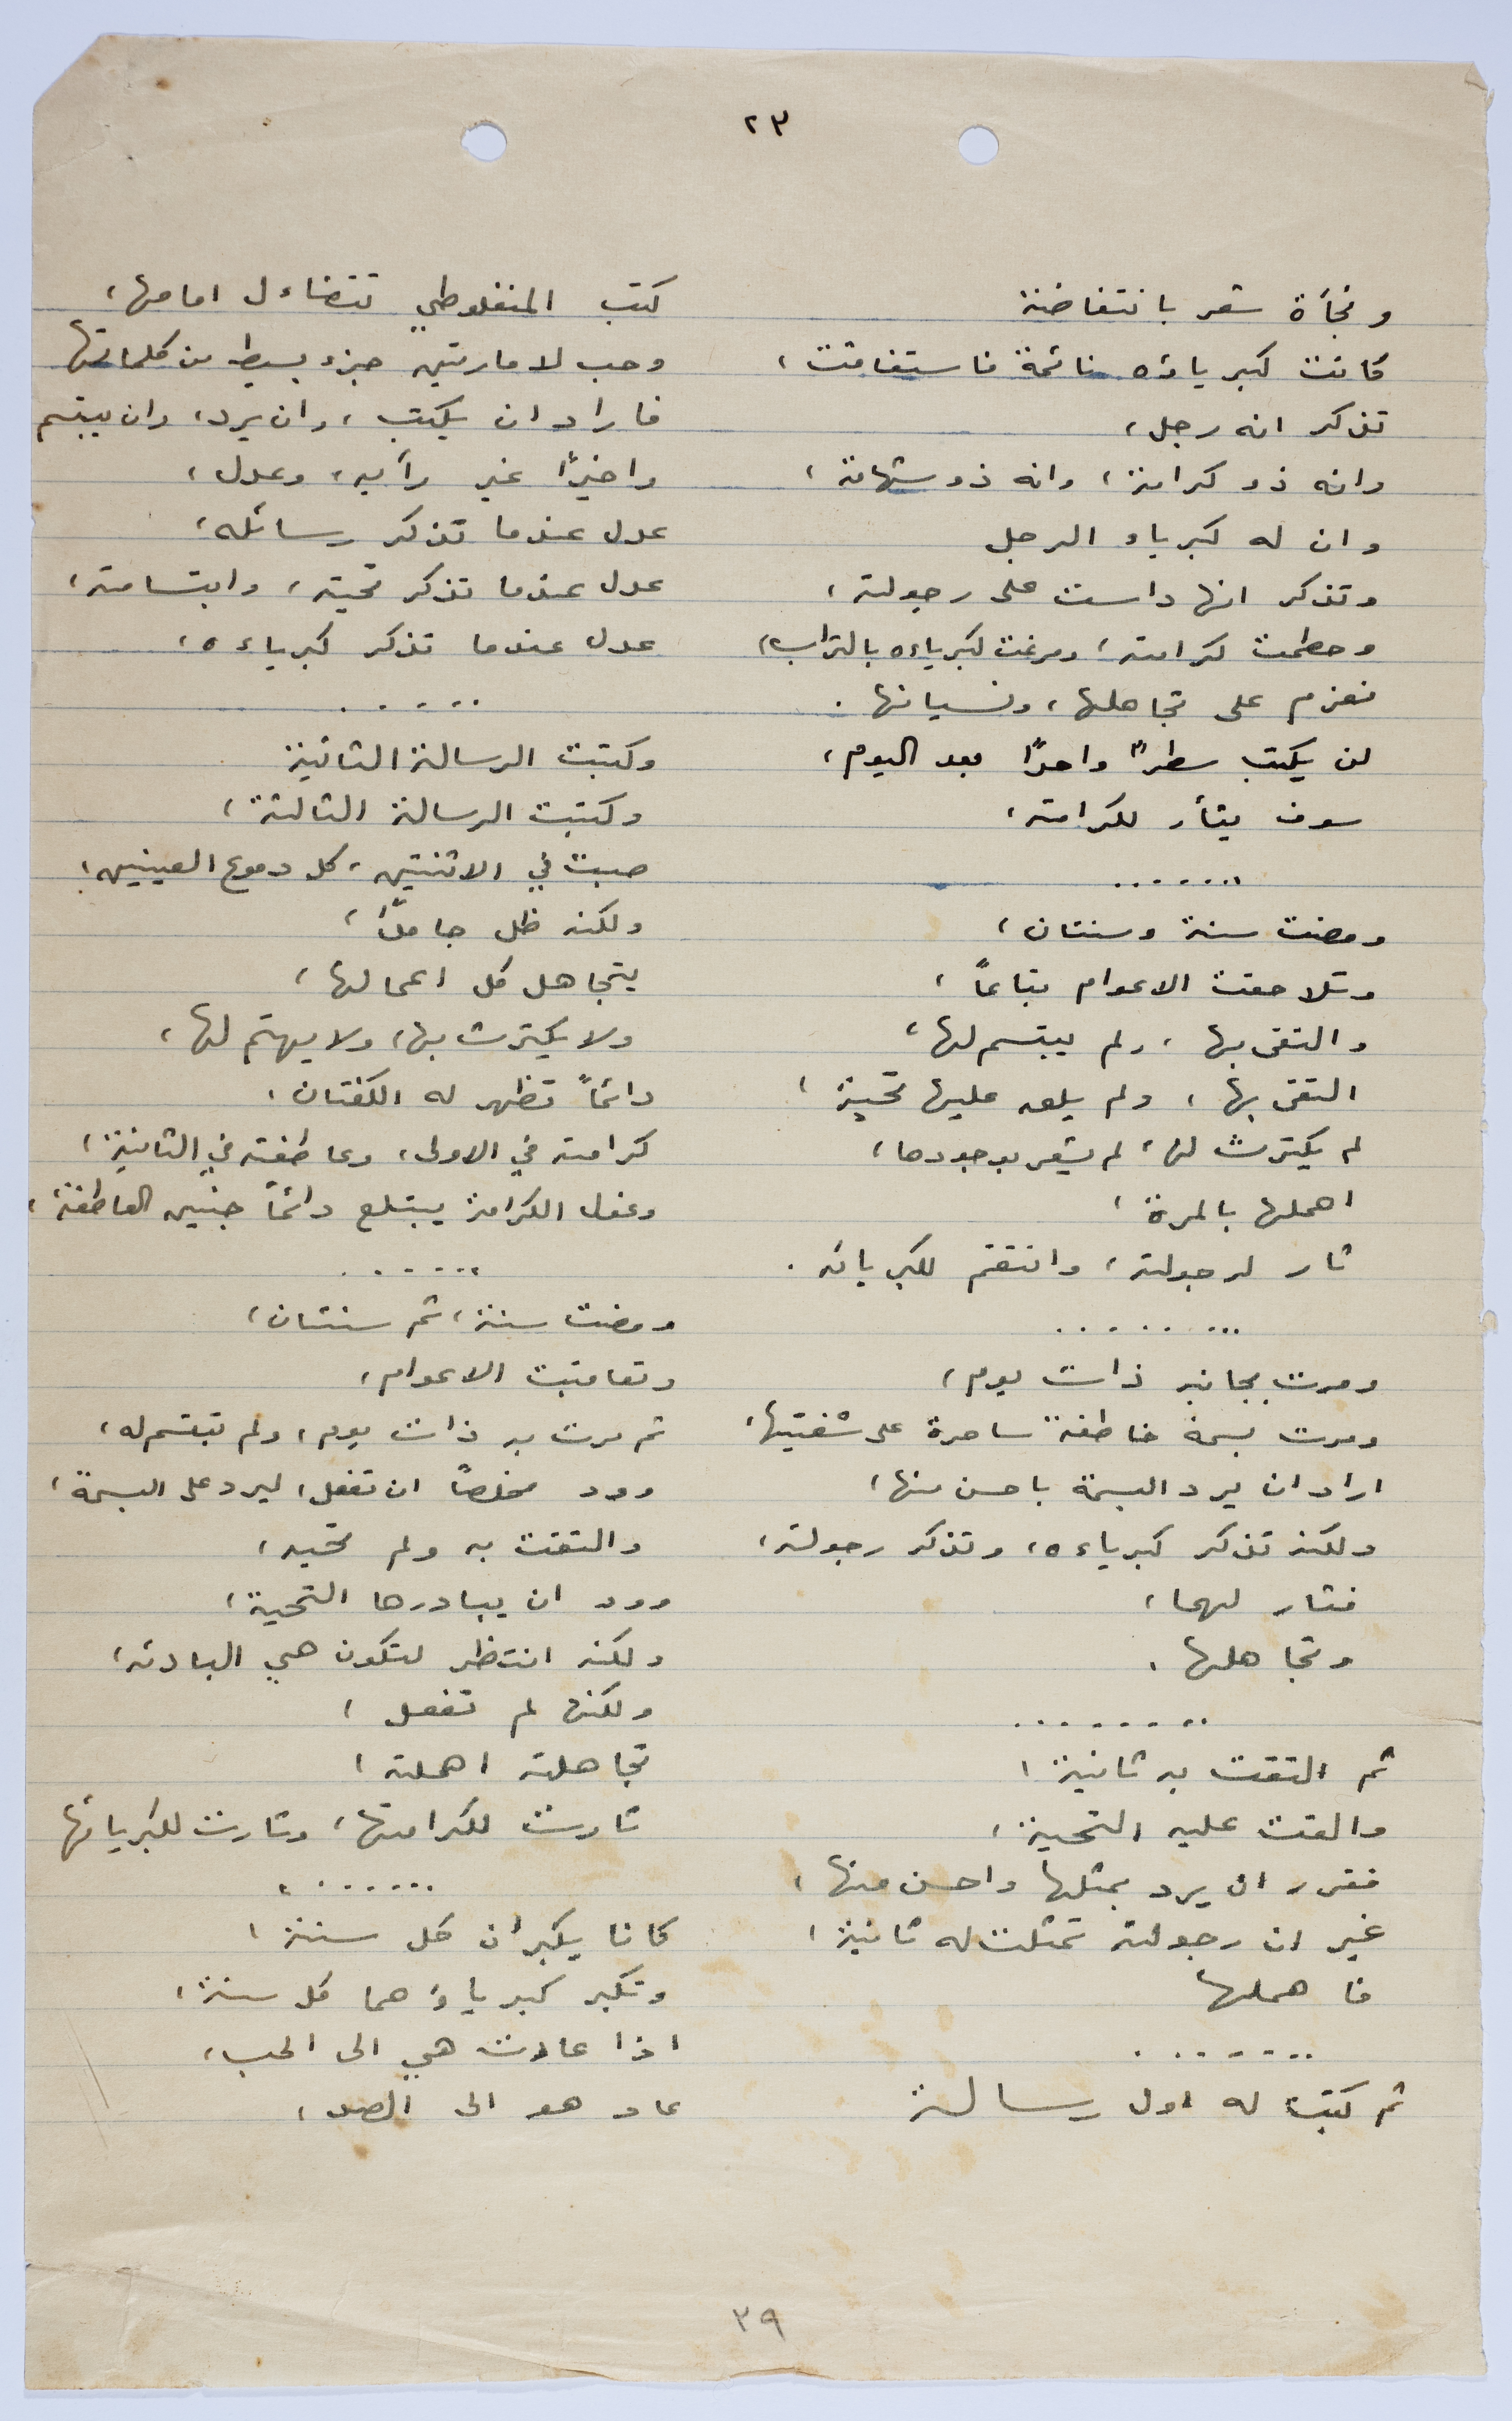 ٢٣
وفجأة شعر بانتفاضة
كانت كبرياؤه نائمة فاستفاقت،
تذكر انه رجل،
وانه ذو كرامة، وانه ذو شهامة،
وان له كبرياء الرجل
وتذكر انها داست على رجولته،
وحطمت كرامته، ومرغت كبرياءه بالتراب،
فعزم على تجاهلها، ونسيانها.
لن يكتب سطراً واحداً بعد اليوم،
سوف يثأر لكرامته،
.......
ومضت سنة وسنتان،
وتلاحقت الاعوام تباعاً،
والتقى بها، ولم يبتسم لها،
التقى بها، ولم يلق عليها تحية،
لم يكترث لها، لم يشعر بوجودها،
اهملها بالمرة،
ثار لرجولته، وانتقم لكبريائه.
........
ومرت بجانبه ذات يوم،
ومرت بسمة خاطفة ساحرة على شفتيها،
اراد ان يرد البسمة باحسن منها،
ولكنه تذكر كبرياءه، وتذكر رجولته،
فثار لهما،
وتجاهلها.
........
ثم التقت به ثانية،
والقت عليه التحية،
فقرر ان يرد بمثلها واحسن منها،
غير ان رجولته تمثلت له ثانية،
فاهملها
.......
ثم كتبت له اول رسالة
كتب المنفلوطي تتضاءل امامها،
وحب لامارتين جزء بسيط من كلماتها
فاراد ان يكتب، وان يرد، وان يبتسم
واخيراً غير رأيه، وعدل،
عدل عندما تذكر رسائله،
عدل عندما تذكر تحيته، وابتسامته،
عدل عندما تذكر كبرياءه،
......
وكتبت الرسالة الثانية
وكتبت الرسالة الثالثة،
صبت في الاثنتين، كل دموع العينين،
ولكنه ظل جامداً،
يتجاهل كل اعمالها،
ولا يكترث بها، ولا يهتم لها،
دائماً تظهر له الكفتان،
كرامته في الاولى، وعاطفته في الثانية،
وغول الكرامة يبتلع دائماً جنين العاطفة،
......
ومضت سنة، ثم سنتان،
وتعاقبت الاعوام،
ثم مرت به ذات يوم، ولم تبتسم له،
وود مخلصاً ان تفعل، ليرد على البسمة،
والتقت به ولم تحيه،
وود ان يبادرها التحية،
ولكنه انتظر لتكون هي البادئه،
ولكنها لم تفعل،
تجاهلته اهملته،
ثارت لكرامتها، وثارت لكبريائها
.......
كانا يكبران كل سنة،
وتكبر كبرياؤهما كل سنة،
اذا عادت هي الى الحب،
عاد هو الى الصد،
٣٩